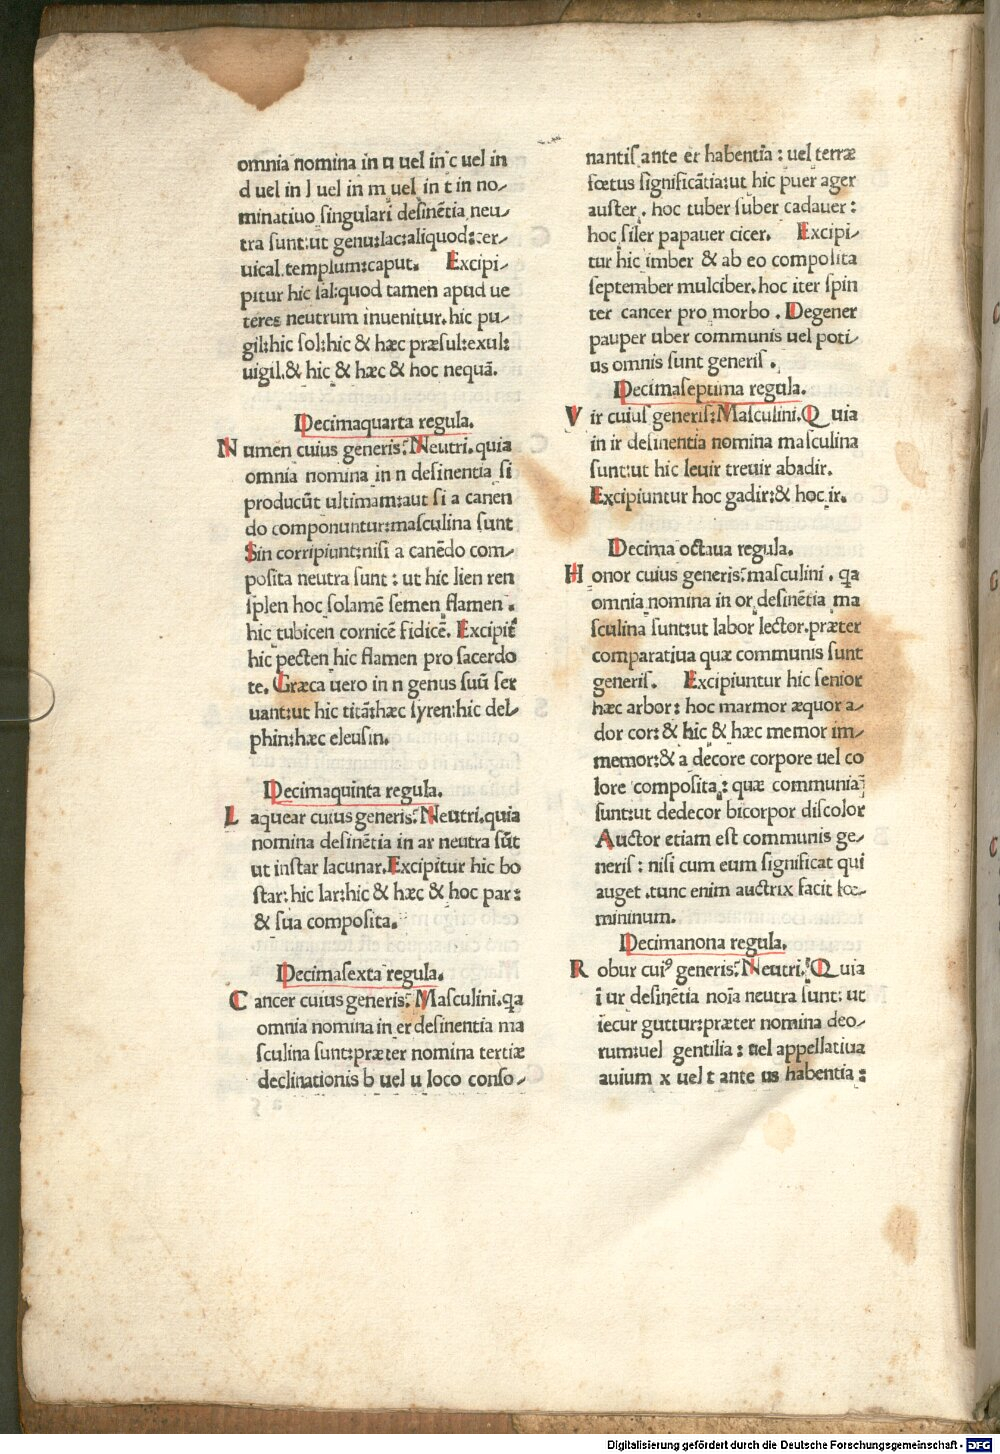 omnia nomina in u uel in c uel in
d uel in l uel in m uel in t in no⸗
minatiuo singulari desinētia neu⸗
tra sunt:ut genu:lac:aliquod:cer⸗
uical.templum:caput. Excipi⸗
pitur hic sal:quod tamen apud ue
teres neutrum inuenitur.hic pu⸗
gil:hic sol:hic & hæc præsul:exul:
uigil.& hic & hæc & hoc nequā.
Decimaquarta regula.
Numen cuius generis? Neutri.quia
omnia nomina in n desinentia si
producūt ultimam:aut si a canen
do componuntur:masculina sunt
Sin corripiunt:nisi a canēdo com⸗
posita neutra sunt : ut hic lien ren
splen hoc solamē semen flamen .
hic tubicen cornicē fidicē. Excipit̄
hic pecten hic flamen pro sacerdo
te. Græca uero in n genus suū ser
uant:ut hic titā:hæc syren:hic del⸗
phin:hæc eleusin.
Decimaquinta regula.
Laquear cuius generis? Neutri.quia
nomina desinētia in ar neutra sūt
ut instar lacunar.Excipitur hic bo
star:hic lar:hic & hæc & hoc par:
& sua composita.
Decimasexta regula.
Cancer cuius generis? Masculini.qa
omnia nomina in er desinentia ma
sculina sunt:præter nomina tertiæ
declinationis b uel u loco conso⸗
nantis ante er habentia : uel terræ
fœtus significātia:ut hic puer ager
auster . hoc tuber suber cadauer :
hoc siler papauer cicer. Excipi⸗
tur hic imber & ab eo composita
september mulciber.hoc iter spin
ter cancer pro morbo . Degener
pauper uber communis uel poti⸗
us omnis sunt generis .
Decimaseptima regula.
Vir cuius generis? Masculini.Quia
in ir desinentia nomina masculina
sunt:ut hic leuir treuir abadir.
Excipiuntur hoc gadir:& hoc ir.
Decima octaua regula.
Honor cuius generis? masculini . qa
omnia nomina in or desinētia ma
sculina sunt:ut labor lector.præter
comparatiua quæ communis sunt
generis. Excipiuntur hic senior
hæc arbor: hoc marmor æquor a⸗
dor cor: & hic & hæc memor im⸗
memor:& a decore corpore uel co
lore composita : quæ communia
sunt:ut dedecor bicorpor discolor
Auctor etiam est communis ge⸗
neris : nisi cum eum significat qui
auget .tunc enim auctrix facit fœ⸗
mininum.
Decimanona regula.
Robur cuiꝰ generis? Neutri. Quia
ī ur desinētia noīa neutra sunt: ut
iecur guttur:præter nomina deo⸗
rum:uel gentilia : uel appellatiua
auium x uel t ante us habentia :
Digitalisierung gefördert durch die Deutsche Forschungsgemeinschaft - DFG